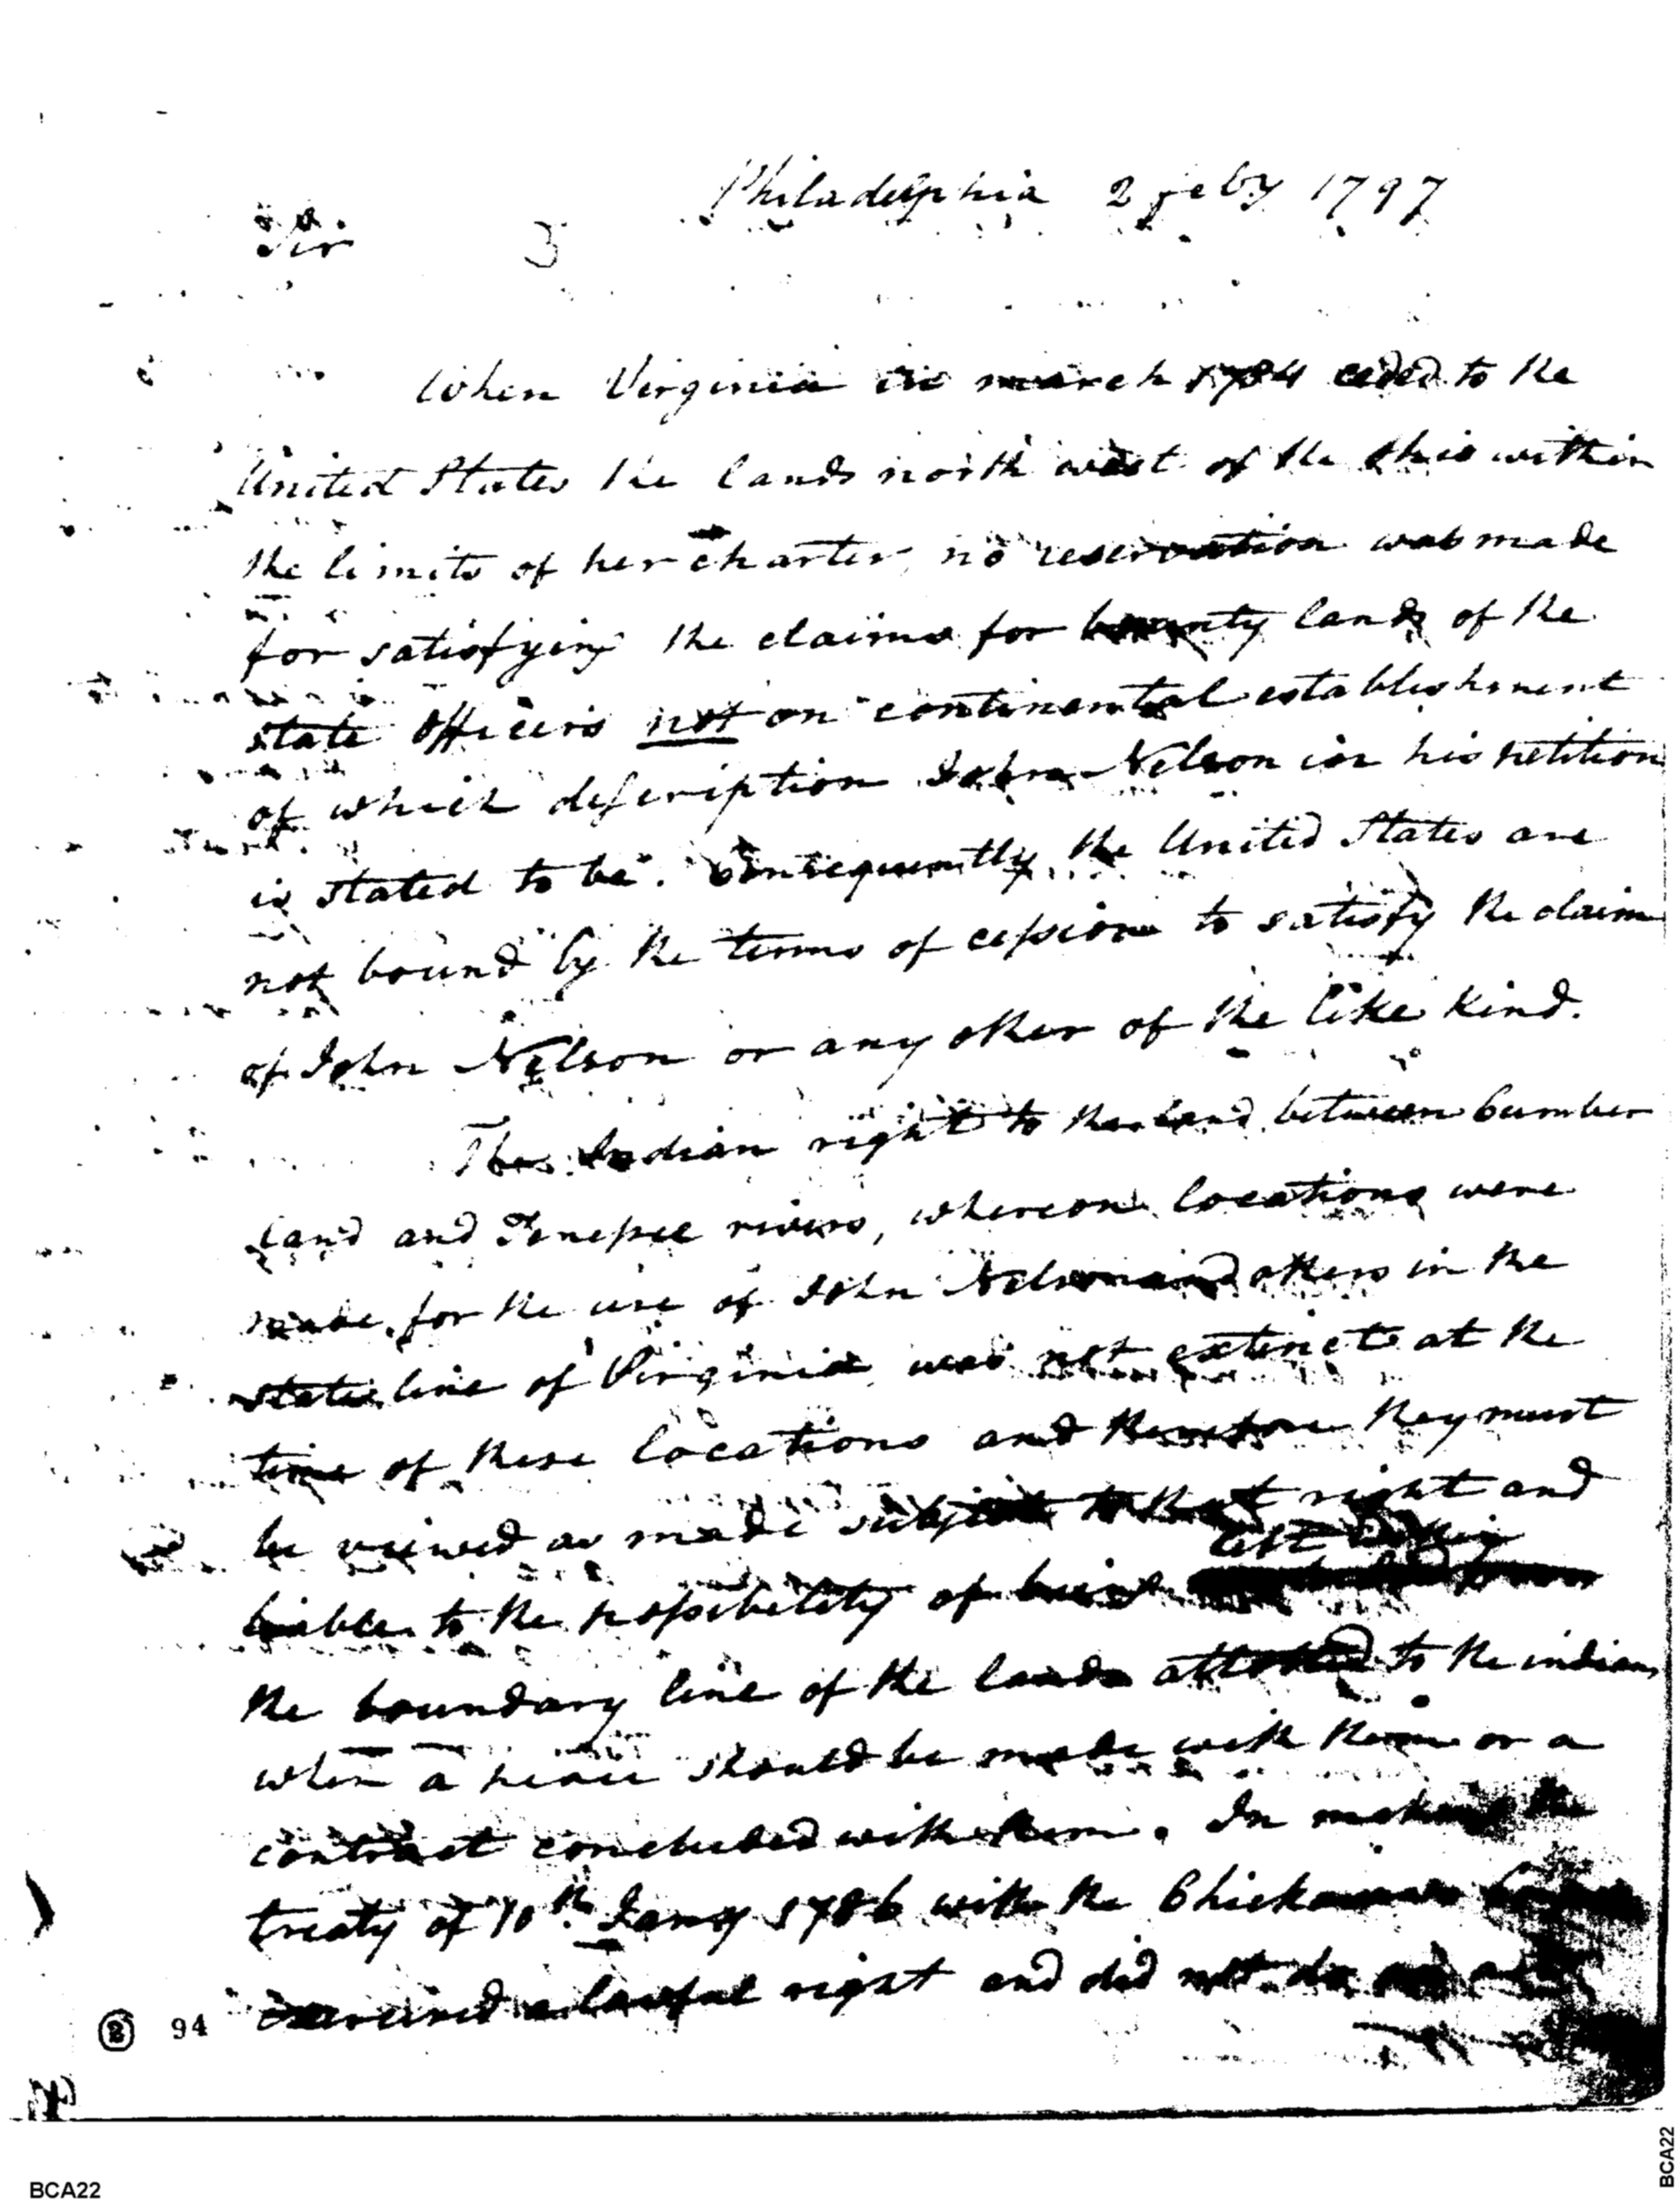 Philadelphia 2 feby 1797
Sir 3
When Virginia in march 1784 ceded to the
United States the lands north west of the Ohio within
the limits of her charter, no reservation was made
for satisfying the claims for bounty lands of the
state officers not on continental establishment
of which description John Nelson in his petition
is stated to be. Consequently the United States are
not bound by the terms of cession to satisfy the claim
of John Nelson or any other of the like kind.
The Indian right to the land between Cumber
land and Tenessee rivers, whereon locations were
made for the use of John Nelson and others in the
state line of Virginia, was not extinct at the
time of these locations and therefore they must
be viewed as made subject to that right and
liable to the possibility of being
left
the boundary line of the lands allotted to the indians
when a peace should be made with them or a
contract concluded with them. In making the
treaty of 10th Jany 1786 with the Chickasaws
exercised a lawful right and did not do
94
BCA22
BCA22